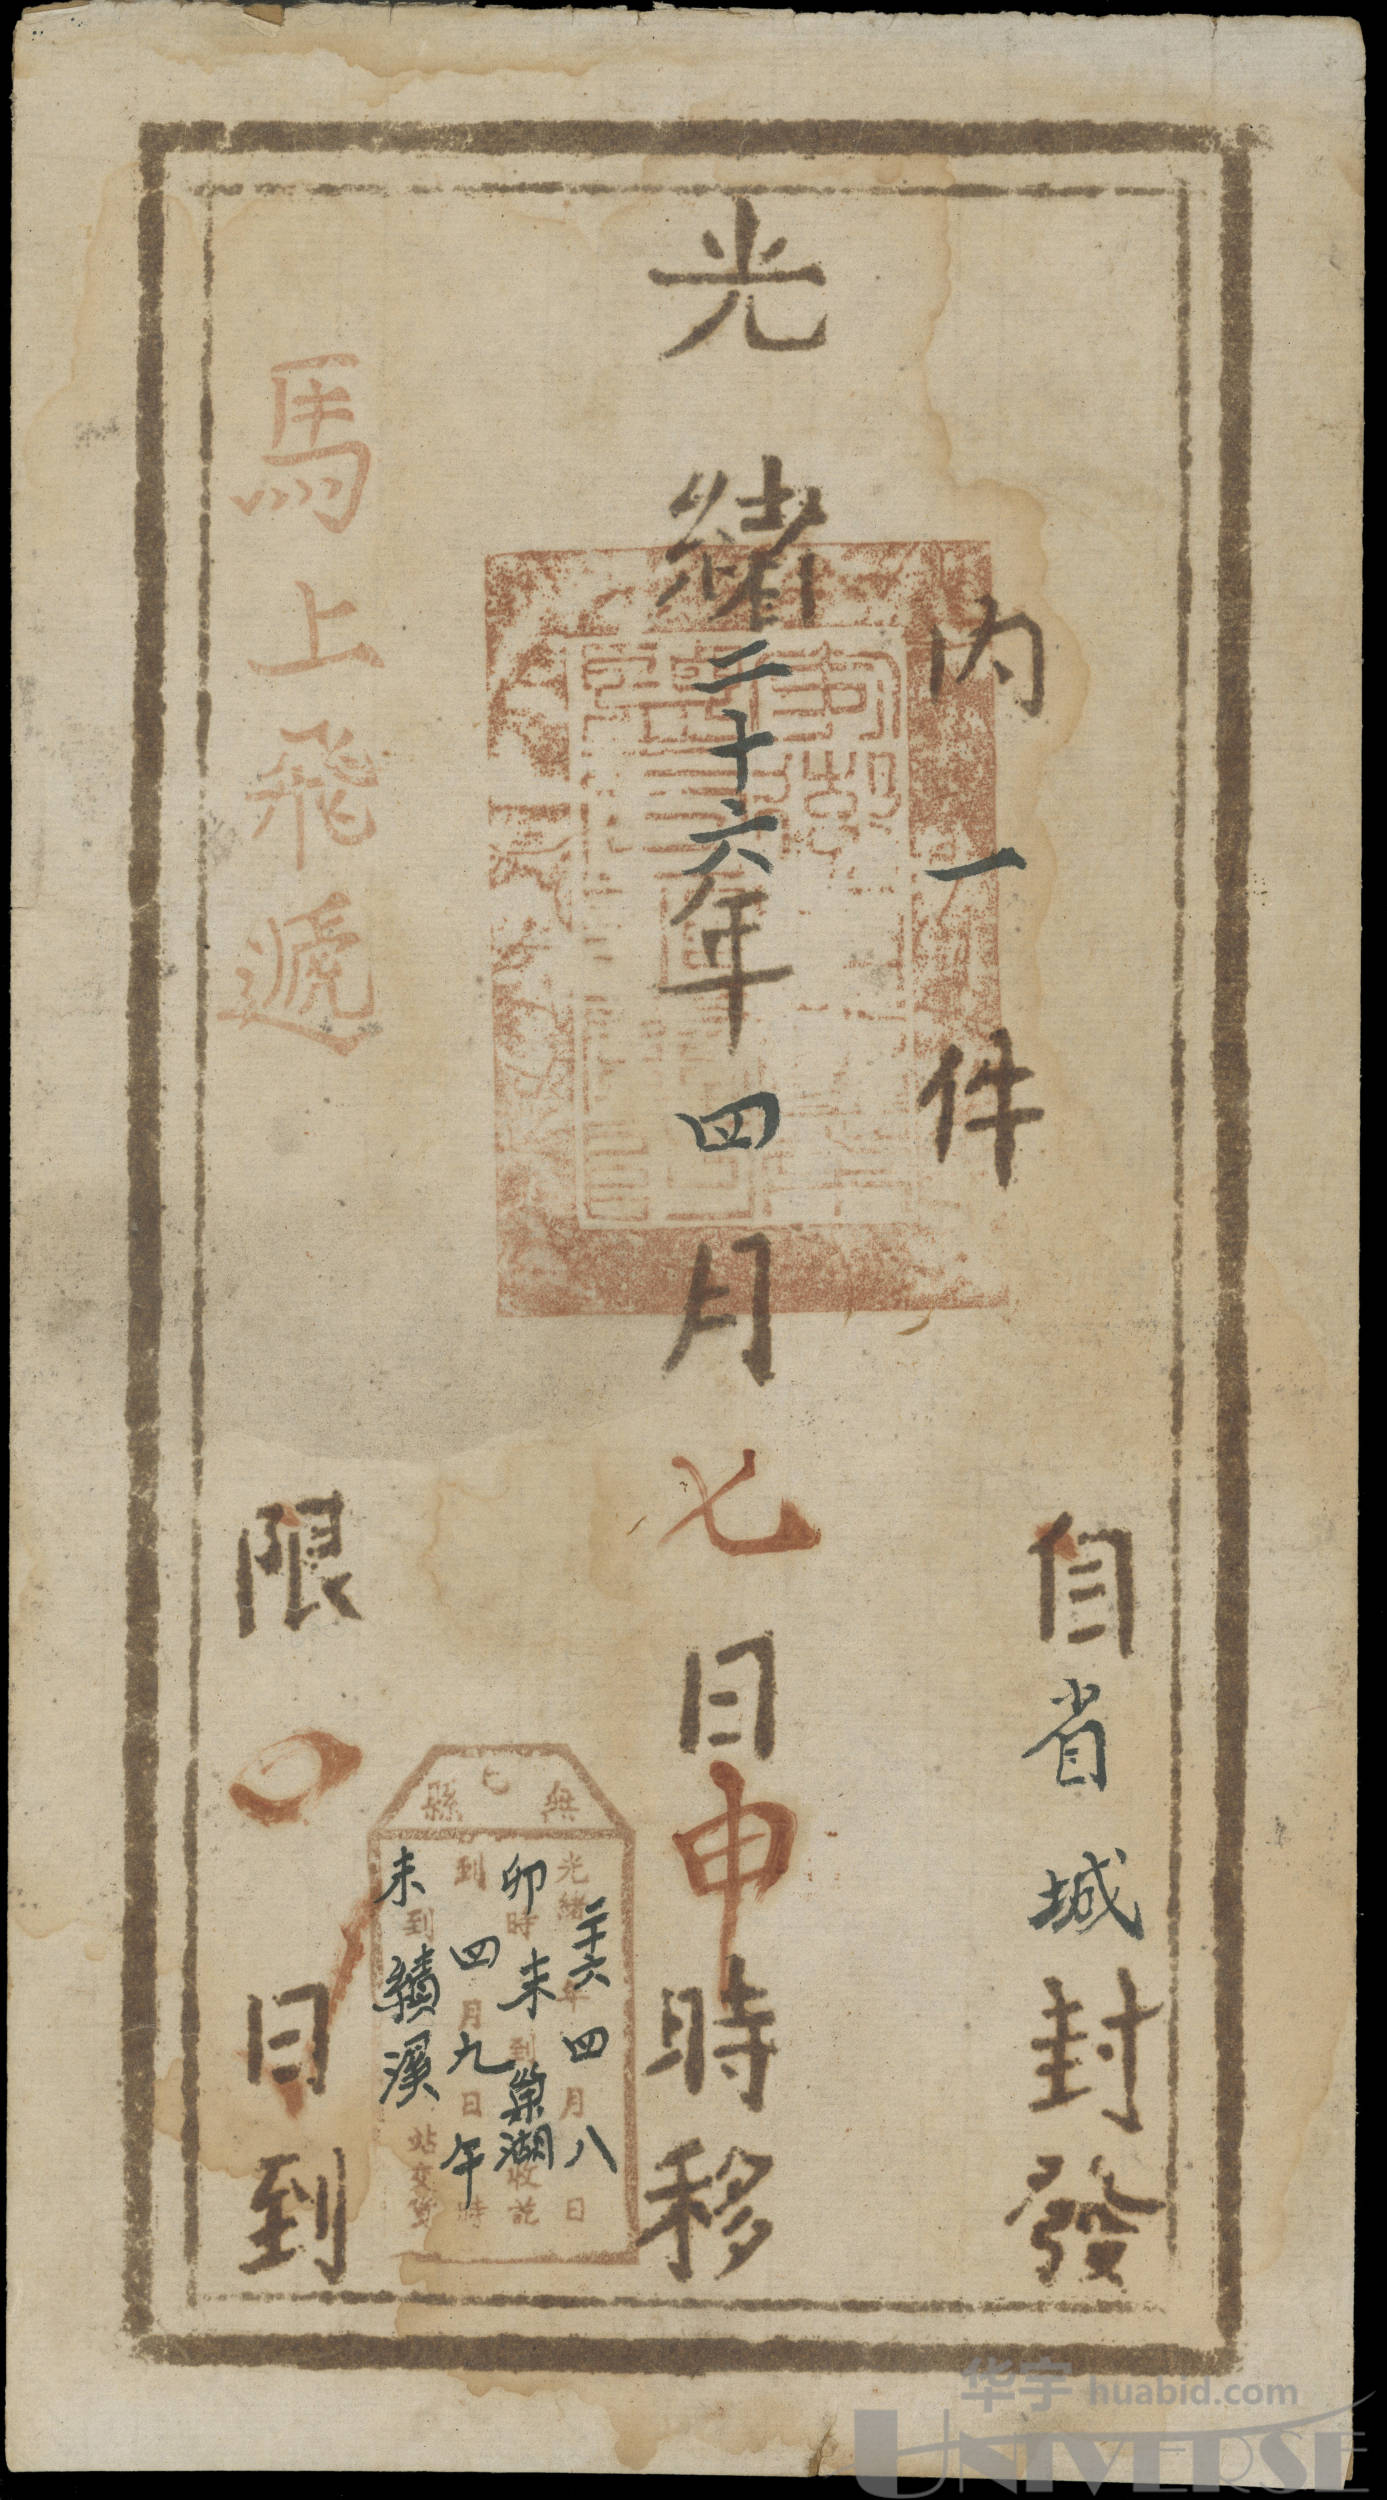 內一件
自省城封發
光緒二十六年四月七日申時移
馬上飛遞
限〇日到
無
縣
光緒二十六年四月八日
卯時
未到巢湖收訖
到四月九日午時
未到績溪站交
华宇 huabid.com
UNIVERSE